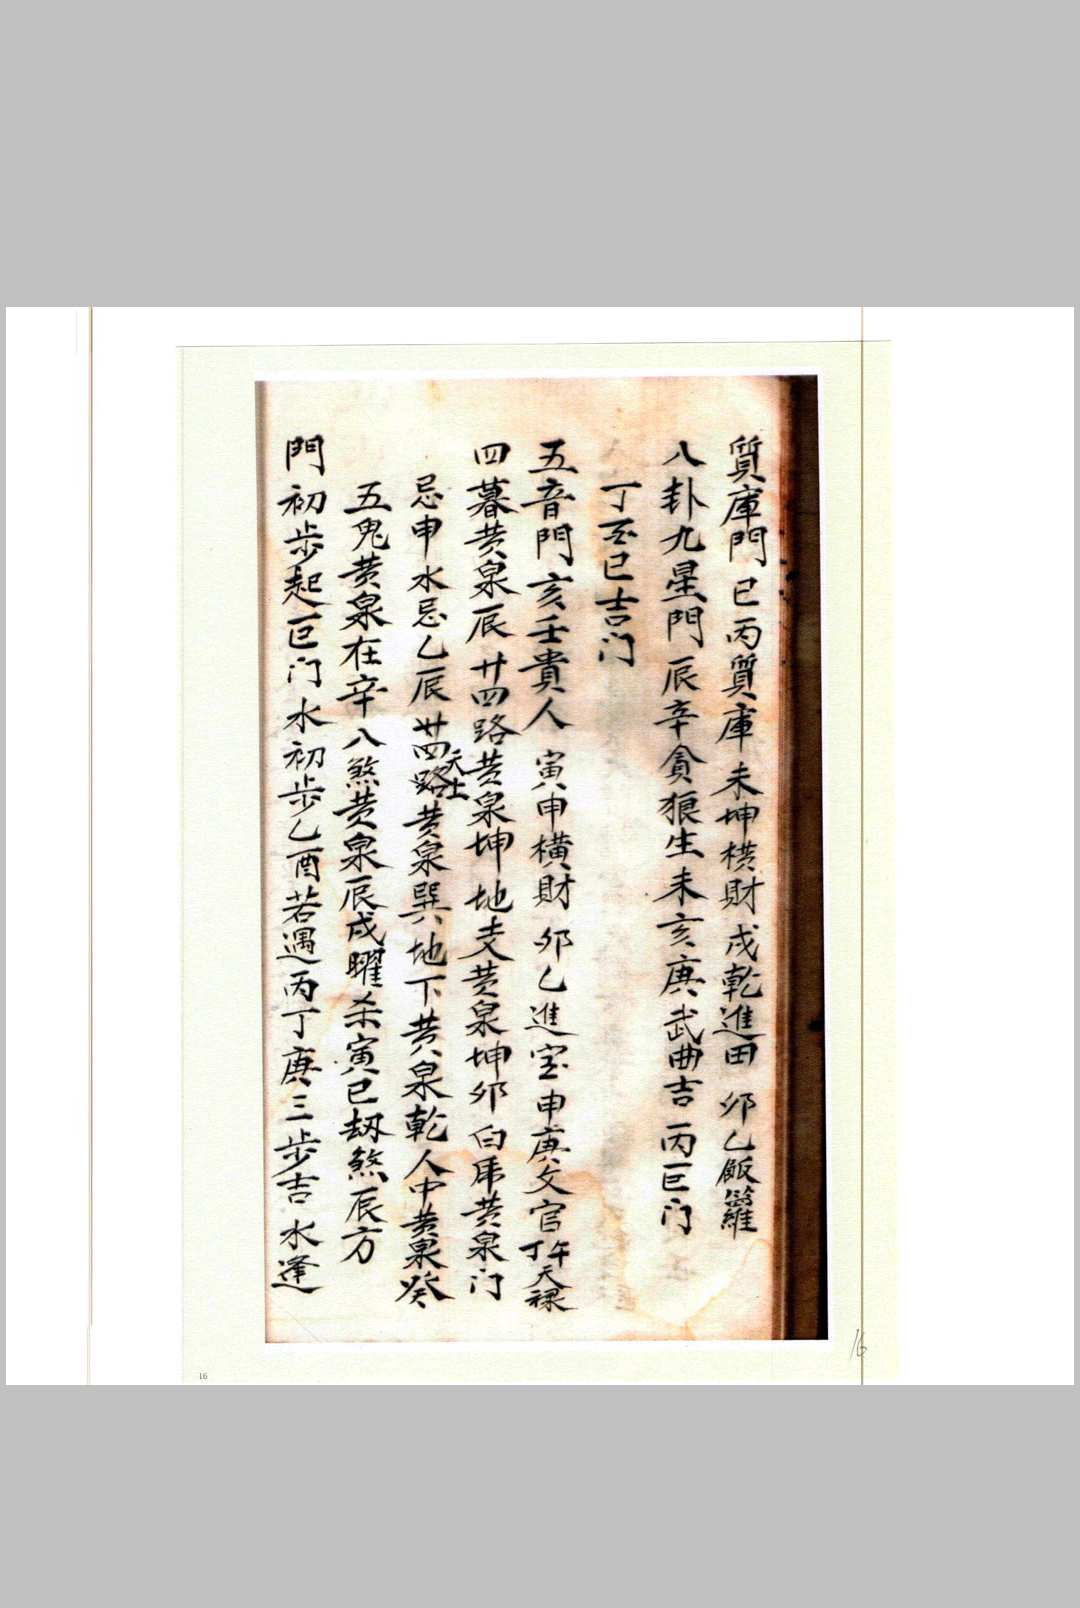 質庫門 巳丙質庫 未坤橫財 戌乾進田 卯乙飯籮
八卦九星門 辰辛貪狼生 未亥庚武曲吉 丙巨门
丁至巳吉门
五音門 亥壬貴人 寅申橫財 卯乙進宝 申庚文官 丁午天禄
四暮黄泉辰 廿四路黄泉坤 地支黄泉坤卯 白虎黄泉门
忌申水忌乙辰 廿四路天上黄泉巽 地下黄泉乾 人中黄泉癸
五鬼黄泉在辛 八煞黄泉辰戌 曜杀寅巳 刼煞辰方
門初步起巨门 水初步乙酉 若遇丙丁庚三步吉 水逢
16
16